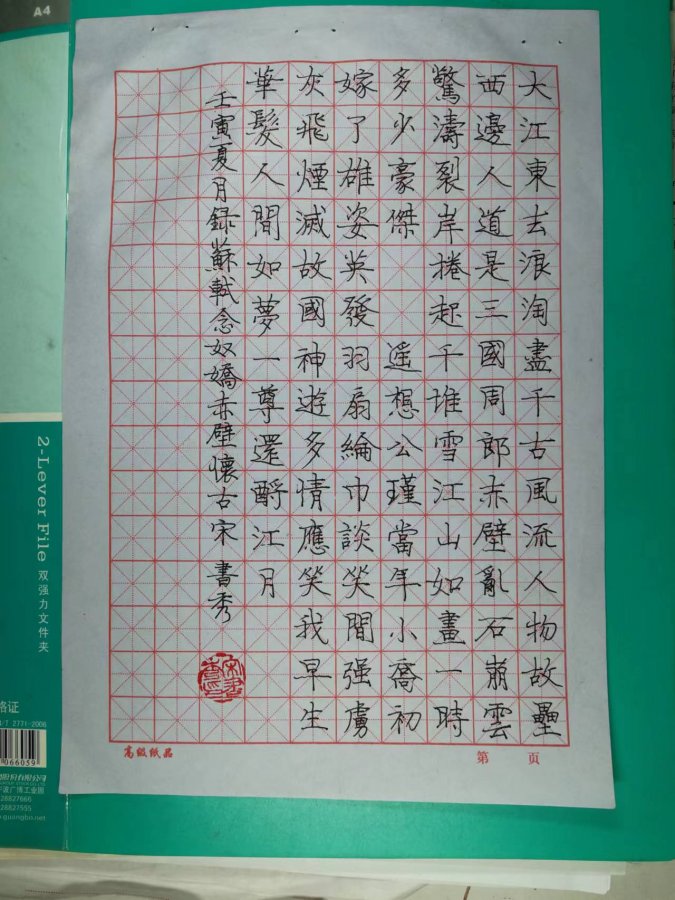 大江東去浪淘盡千古風流人物故壘
西邊人道是三國周郎赤壁亂石崩雲
驚濤裂岸捲起千堆雪江山如畫一時
多少豪傑 遥想公瑾當年小喬初
嫁了雄姿英發羽扇綸巾談笑間强虜
灰飛煙滅故國神遊多情應笑我早生
華髮人間如夢一尊還酹江月
壬寅夏月録蘇軾念奴嬌赤壁懷古宋書秀
高级纸品
第 页
A4
2-Lever File 双强力文件夹
格证
2771-2006
066059
股份有限公司
波广博工业园
28827666
28827555
guangbo.net